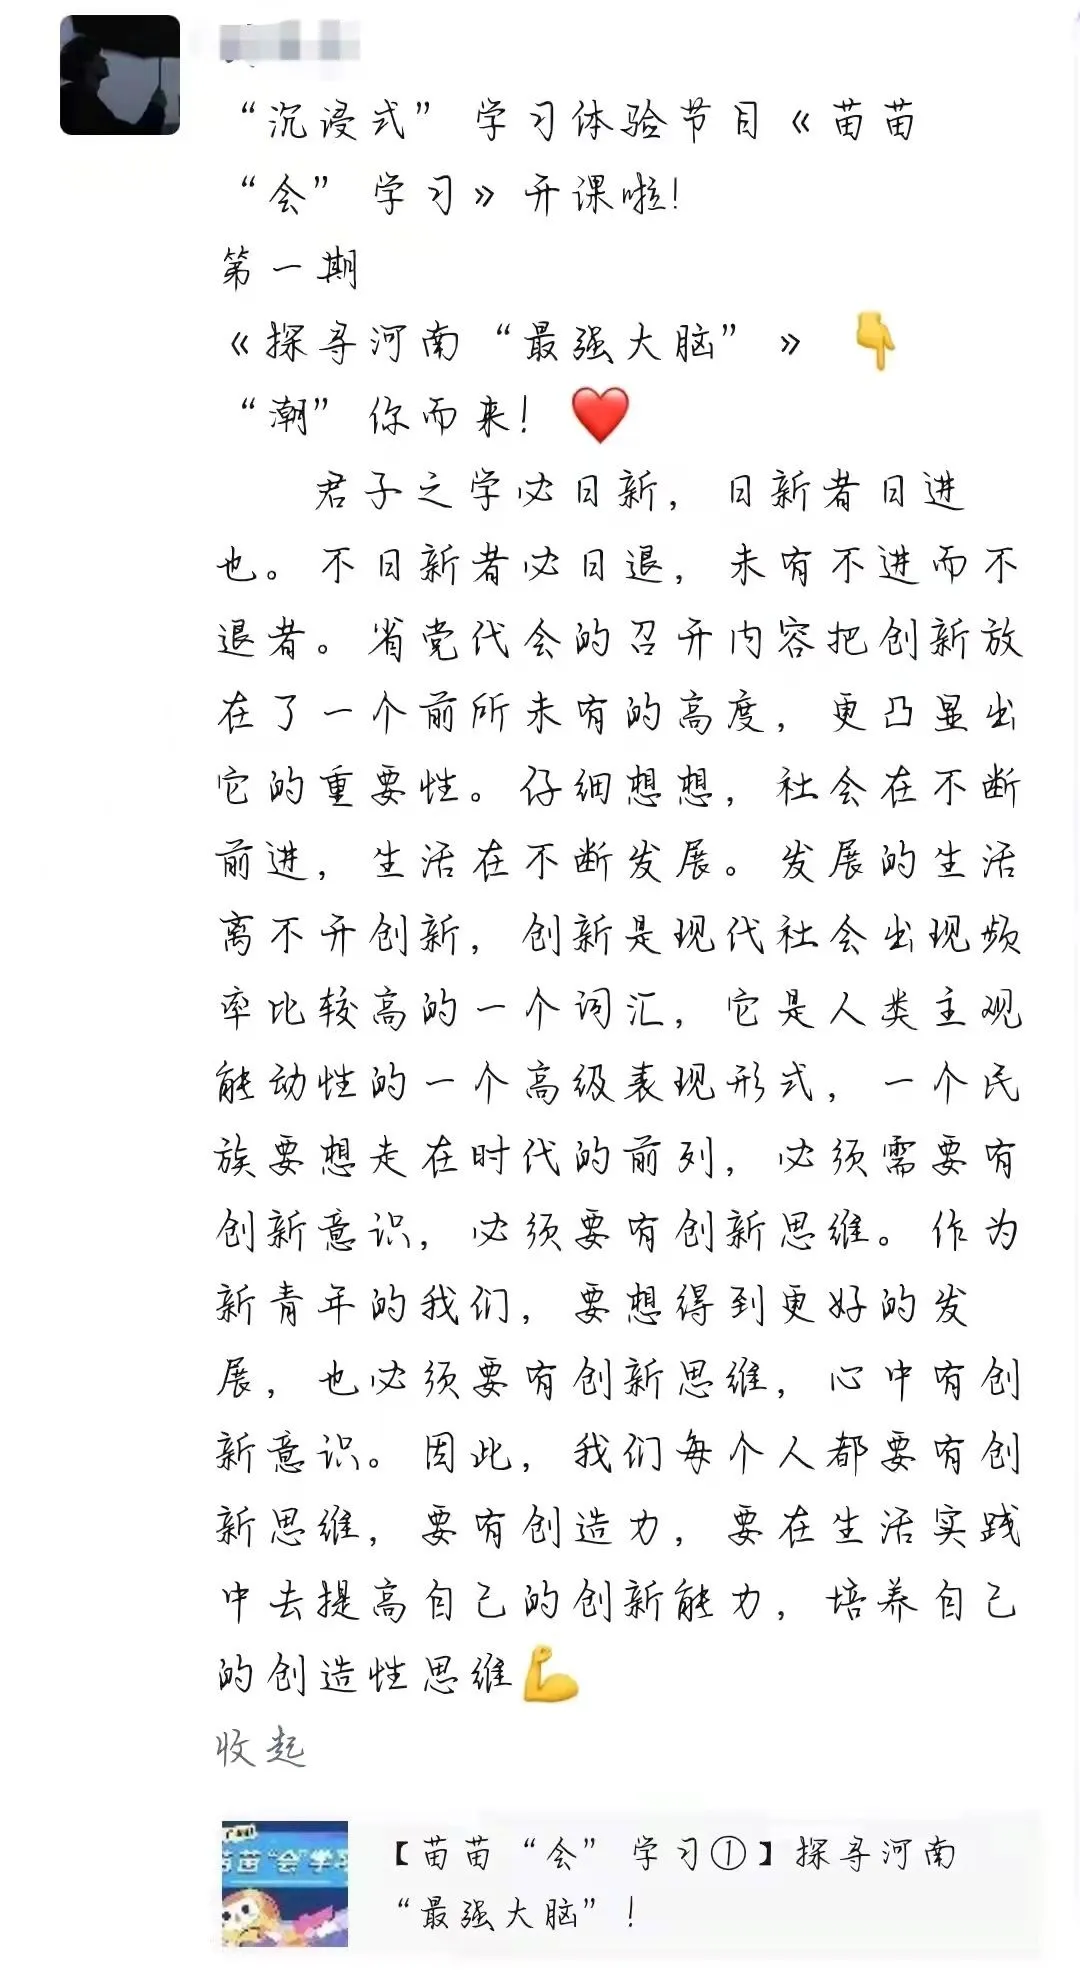 “沉浸式”学习体验节目《苗苗
“会”学习》开课啦!
第一期
《探寻河南“最强大脑”》👇
“潮”你而来!❤️
君子之学必日新,日新者日进
也。不日新者必日退,未有不进而不
退者。省党代会的召开内容把创新放
在了一个前所未有的高度,更凸显出
它的重要性。仔细想想,社会在不断
前进,生活在不断发展。发展的生活
离不开创新,创新是现代社会出现频
率比较高的一个词汇,它是人类主观
能动性的一个高级表现形式,一个民
族要想走在时代的前列,必须需要有
创新意识,必须要有创新思维。作为
新青年的我们,要想得到更好的发
展,也必须要有创新思维,心中有创
新意识。因此,我们每个人都要有创
新思维,要有创造力,要在生活实践
中去提高自己的创新能力,培养自己
的创造性思维💪
收起
苗苗“会”学习
【苗苗“会”学习①】探寻河南
“最强大脑”!